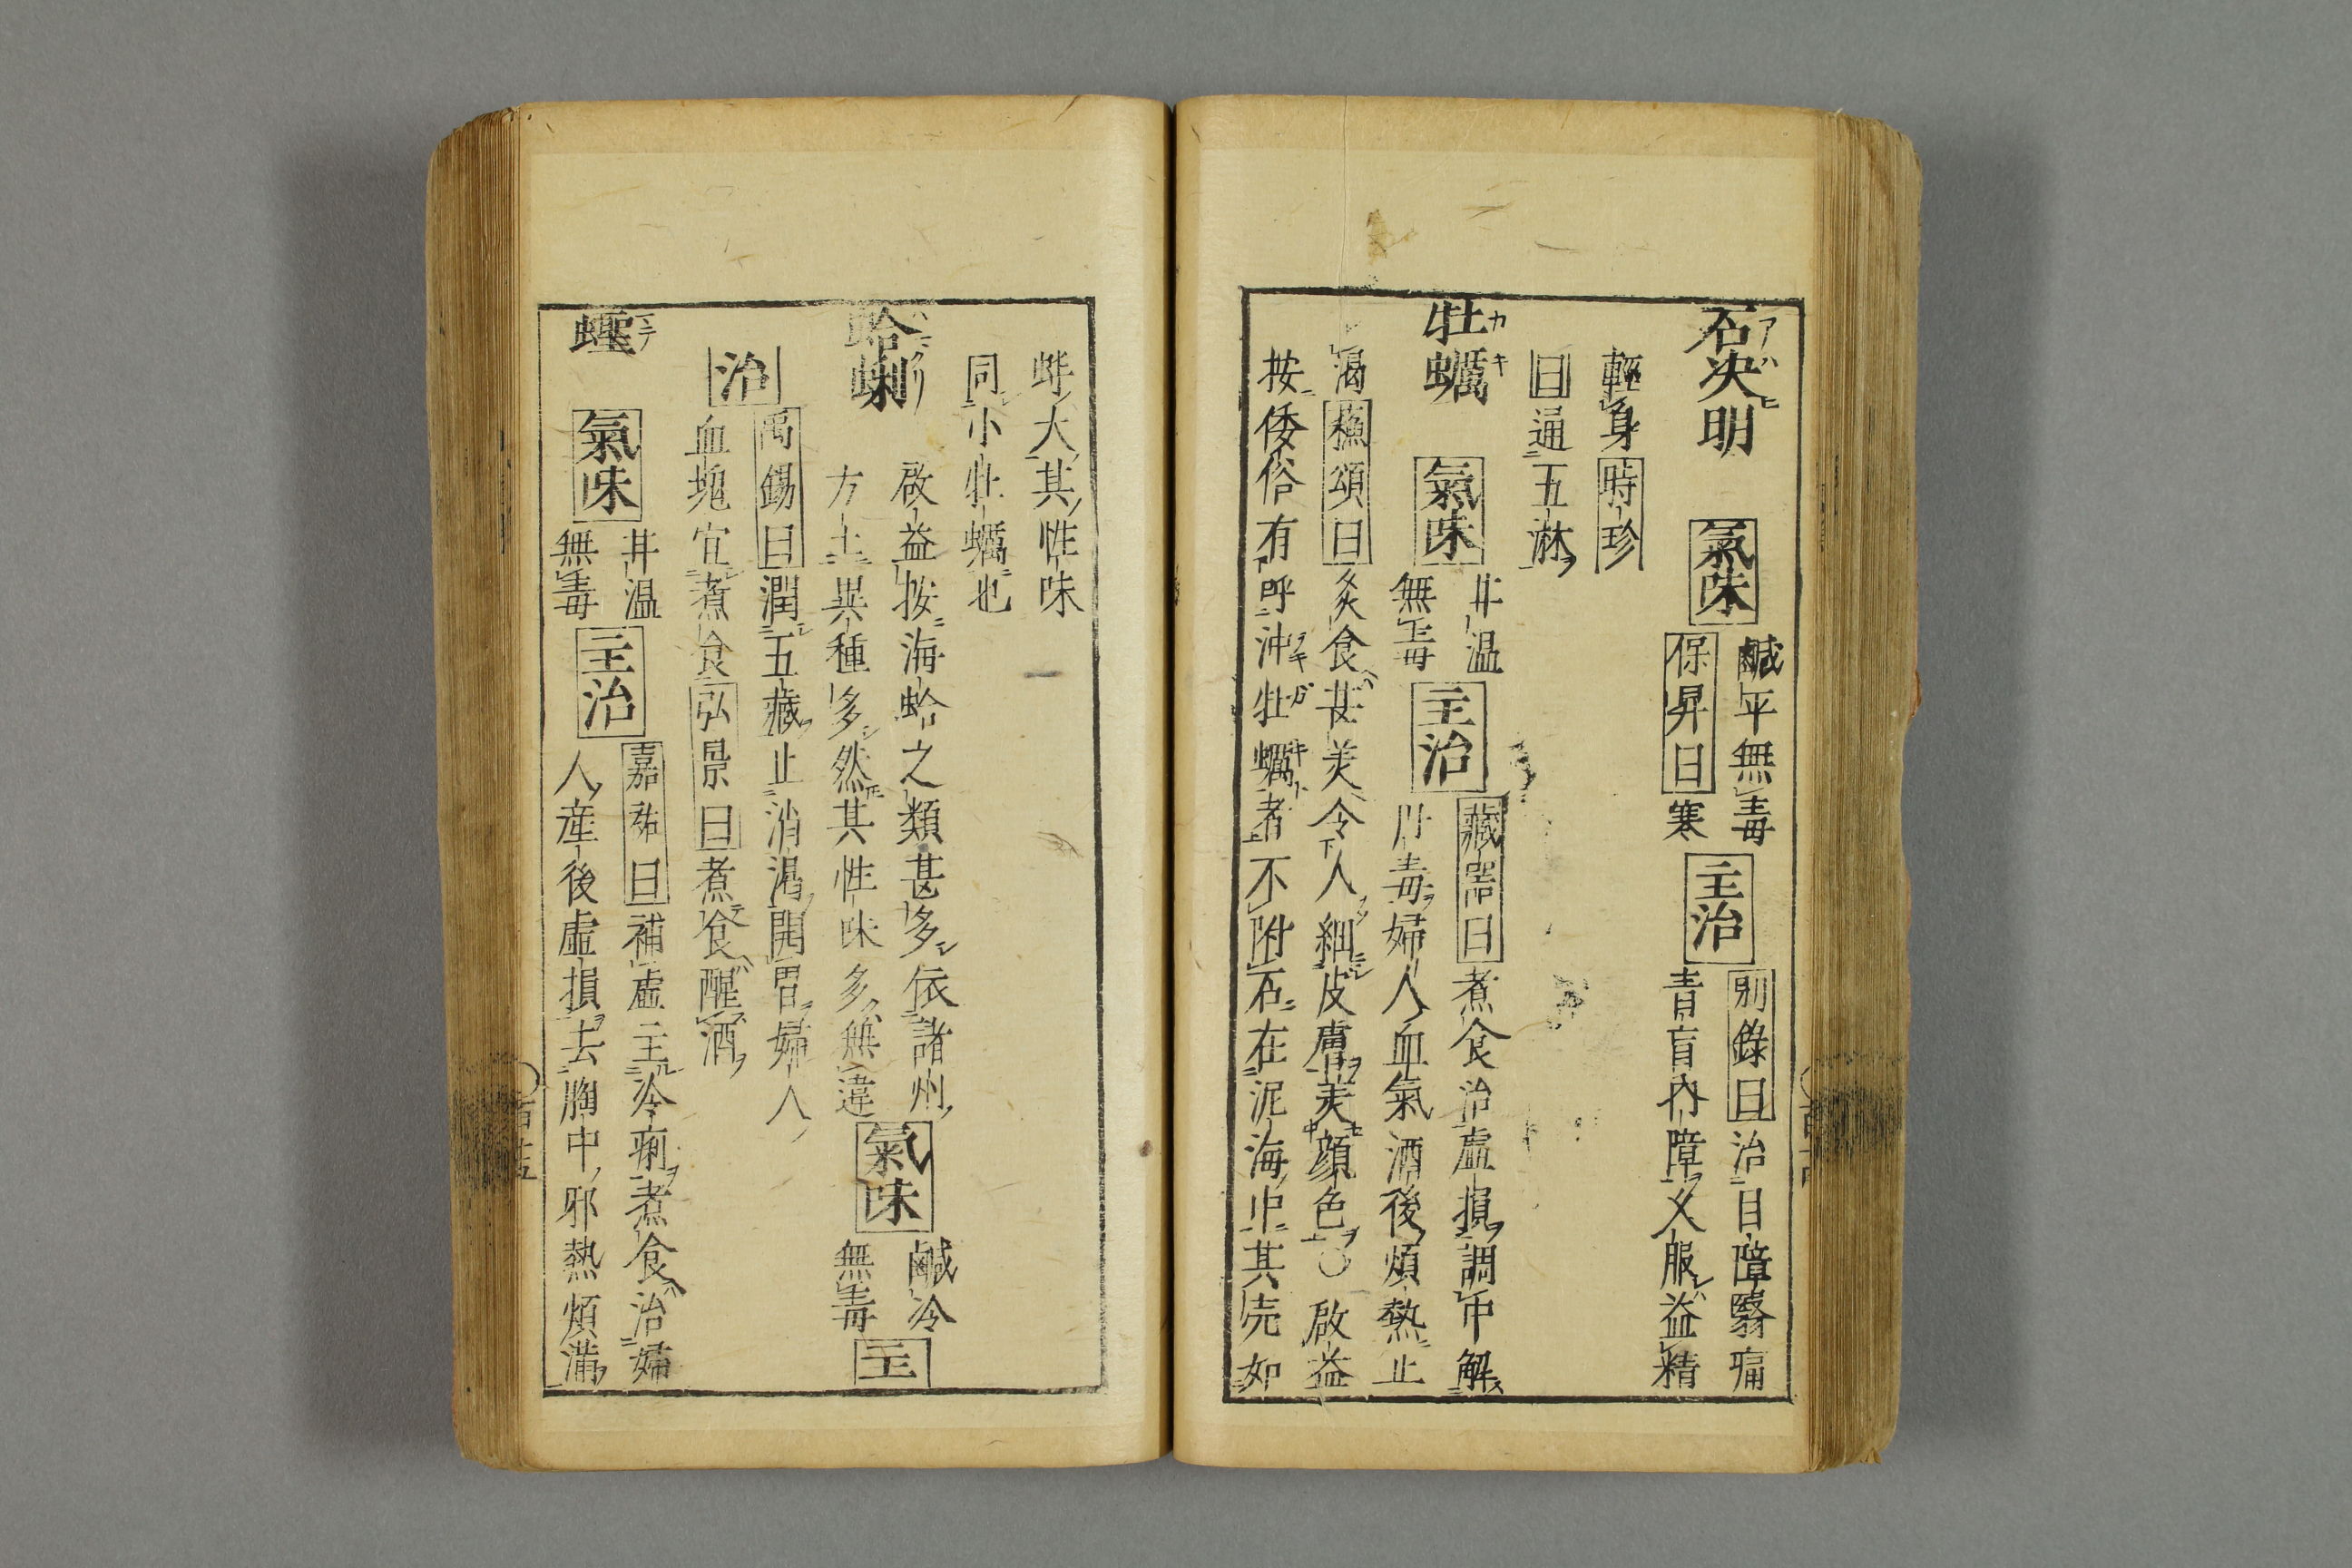 石决明 氣味 鹹平無毒
保昇曰寒 主治 別錄曰治目障瞖痛
青盲內障久服益精
輕身時珍
曰通五淋
牡蠣 氣味 甘温
無毒 主治 藏器曰煮食治虛損調中解
丹毒婦人血氣酒後煩熱止
渴蘇頌曰炙食甘美令人細皮膚美顔色〇啟益
按倭俗有呼沖牡蠣者不附石在泥海中其売如
蚌大其性味
同小牡蠣也
蛤蜊 啟益按海蛤之類甚多依諸州
方土異種多然其性味多無違 氣味 鹹冷
無毒 主
治 禹錫曰潤五藏止消渴開胃婦人
血塊宜煮食弘景曰煮食醒酒
蟶 氣味 甘温
無毒 主治 嘉祐曰補虛主冷痢煮食治婦
人産後虛損去胸中邪熱煩滿